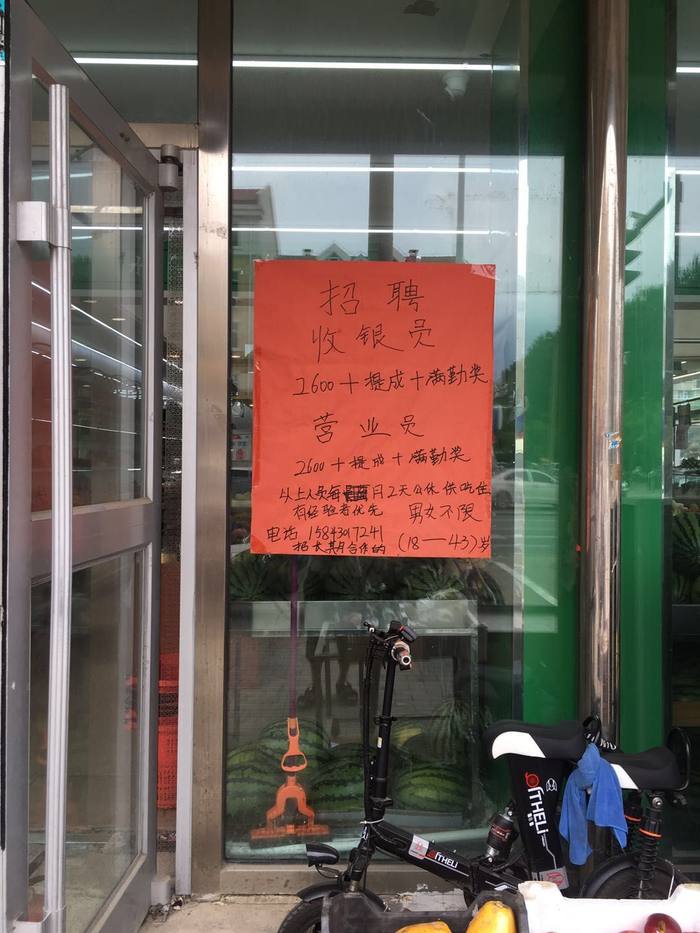 招聘
收银员
2600+提成+满勤奖
营业员
2600+提成+满勤奖
以上人员每月2天公休 供吃住
有经验者优先 男女不限
电话 15843017241
招长期合作的 (18—43)岁
THELI
THELI